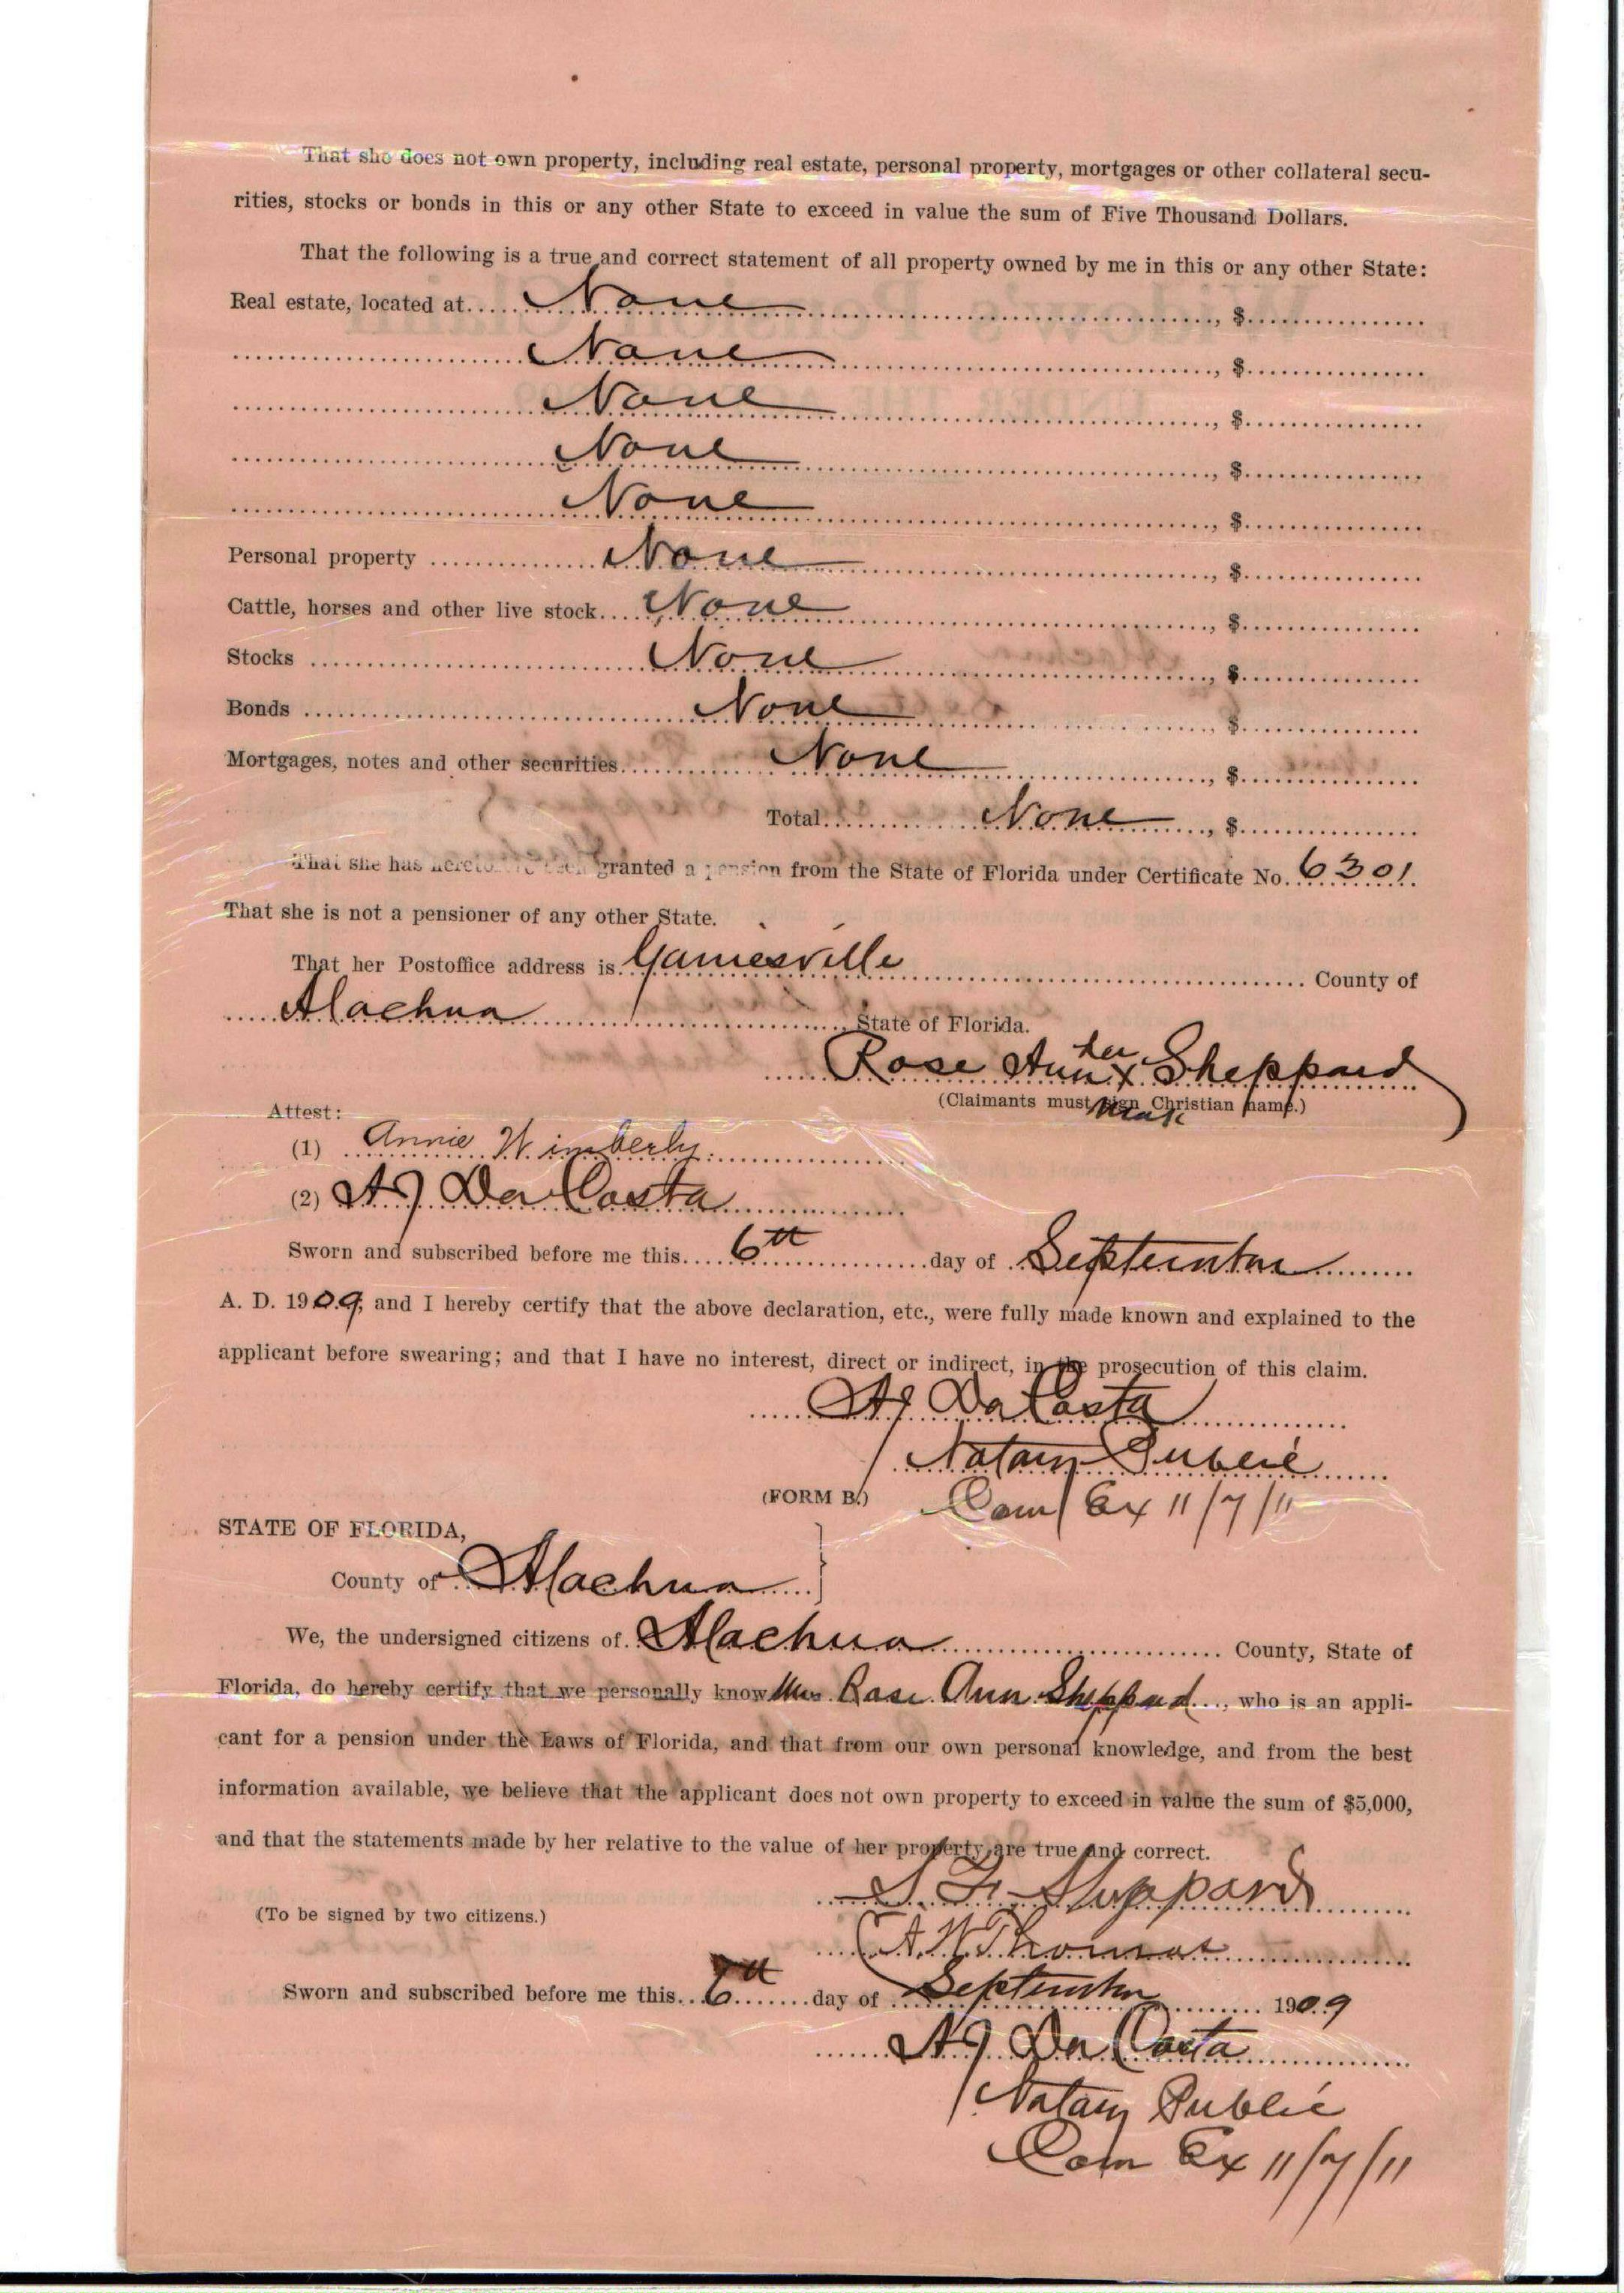 That she does not own property, including real estate, personal property, mortgages or other collateral secu-
rities, stocks or bonds in this or any other State to exceed in value the sum of Five Thousand Dollars.
That the following is a true and correct statement of all property owned by me in this or any other State:
Real estate, located at.... None ............, $............
............ None ............, $............
............ None ............, $............
............ None ............, $............
............ None ............, $............
Personal property ............ None ............, $............
Cattle, horses and other live stock.... None ............, $............
Stocks ............ None ............, $............
Bonds ............ None ............, $............
Mortgages, notes and other securities............ None ............, $............
Total............ None ......, $............
That she has heretofore been granted a pension from the State of Florida under Certificate No. 6301.
That she is not a pensioner of any other State.
That her Postoffice address is. Gainesville ............ County of
.....Alachua ............ State of Florida.
her
.....Rose Ann X Sheppard
(Claimants must sign Christian name.)
mark
Attest:
(1) Annie Wimberly
(2) A J Da Costa
Sworn and subscribed before me this.... 6th ............day of September
A. D. 1909, and I hereby certify that the above declaration, etc., were fully made known and explained to the
applicant before swearing; and that I have no interest, direct or indirect, in the prosecution of this claim.
.....A J Da Costa
Notary Public
(FORM B.) Com Ex 11/7/11
STATE OF FLORIDA,
County of Alachua }
We, the undersigned citizens of. Alachua ............ County, State of
Florida, do hereby certify that we personally know Mrs Rose Ann Sheppard...., who is an appli-
cant for a pension under the Laws of Florida, and that from our own personal knowledge, and from the best
information available, we believe that the applicant does not own property to exceed in value the sum of $5,000,
and that the statements made by her relative to the value of her property are true and correct.
S. F. Sheppard
(To be signed by two citizens.)
A W Thomas
Sworn and subscribed before me this... 6th ......day of September ............ 1909
.....A J Da Costa
Notary Public
Com Ex 11/7/11